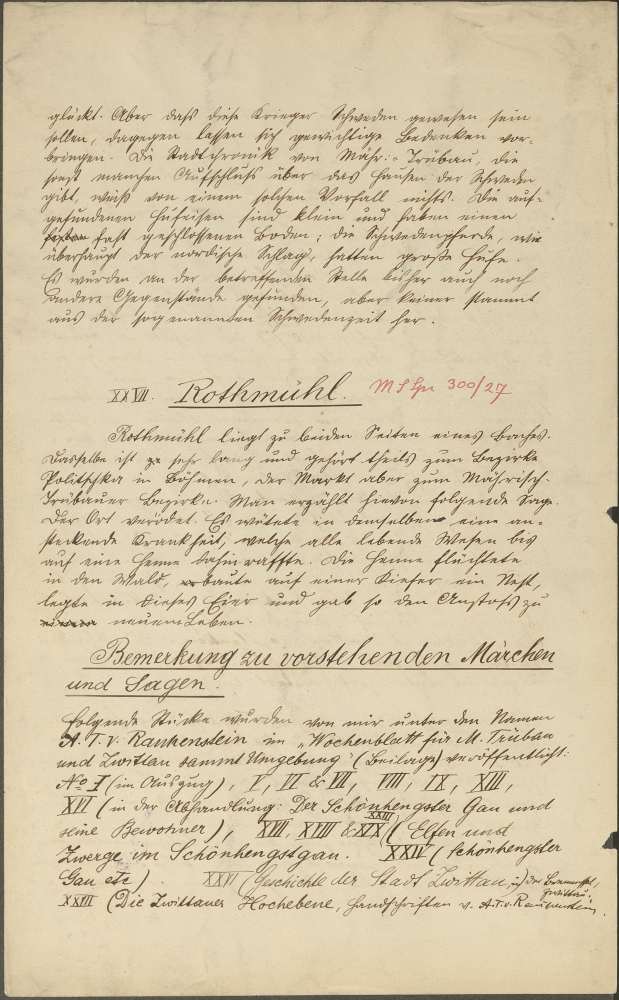 glückt. Aber daß diese Krieger Schweden gewesen sein
sollen, dagegen lassen sich gewichtige Bedenken vor-
bringen. Die Stadtchronik von Mähr.-Trübau, die
sonst manchen Aufschluß über das Hausen der Schweden
gibt, weiß von einem solchen Vorfall nichts. Die auf-
gefundenen Hufeisen sind klein und haben einen
fast geschlossenen Boden; die Schwedenpferde, wie
überhaupt der nordische Schlag, hatten große Hufe.
Es wurden an der betreffenden Stelle bisher auch noch
andere Gegenstände gefunden, aber keiner stammt
aus der sogenannten Schwedenzeit her.
XXVII. Rothmühl. MS Spr 300/27
Rothmühl liegt zu beiden Seiten eines Baches.
Dasselbe ist sehr lang und gehört theils zum Bezirke
Politschka in Böhmen, der Markt aber zum Mährisch-
Trübauer Bezirke. Man erzählt hievon folgende Sage.
Der Ort verödet. Es wütete in demselben eine an-
steckende Krankheit, welche alle lebende Wesen bis
auf eine Henne dahinraffte. Die Henne flüchtete
in den Wald, baute auf einer Kiefer ein Nest,
legte in dieses Eier und gab so den Anstoß zu
neuem Leben.
Bemerkung zu vorstehenden Märchen
und Sagen.
Folgende Stücke wurden von mir unter dem Namen
A. T. v. Raukenstein im "Wochenblatt für M. Trübau
und Zwittau sammt Umgebung" (Beilage) veröffentlicht:
No I (im Auszug), V, VI & VII, VIII, IX, XIII,
XVI (in der Abhandlung: Der Schönhengster Gau und
seine Bewohner), XVII, XVIII & XIX XXIII (Elfen und
Zwerge im Schönhengstgau. XXIV (Schönhengster
Gau etc). XXVI (Geschichte der Stadt Zwittau,
XXVII (Die Zwittauer Hochebene, Handschriften v. A. T. v. Raukenstein.